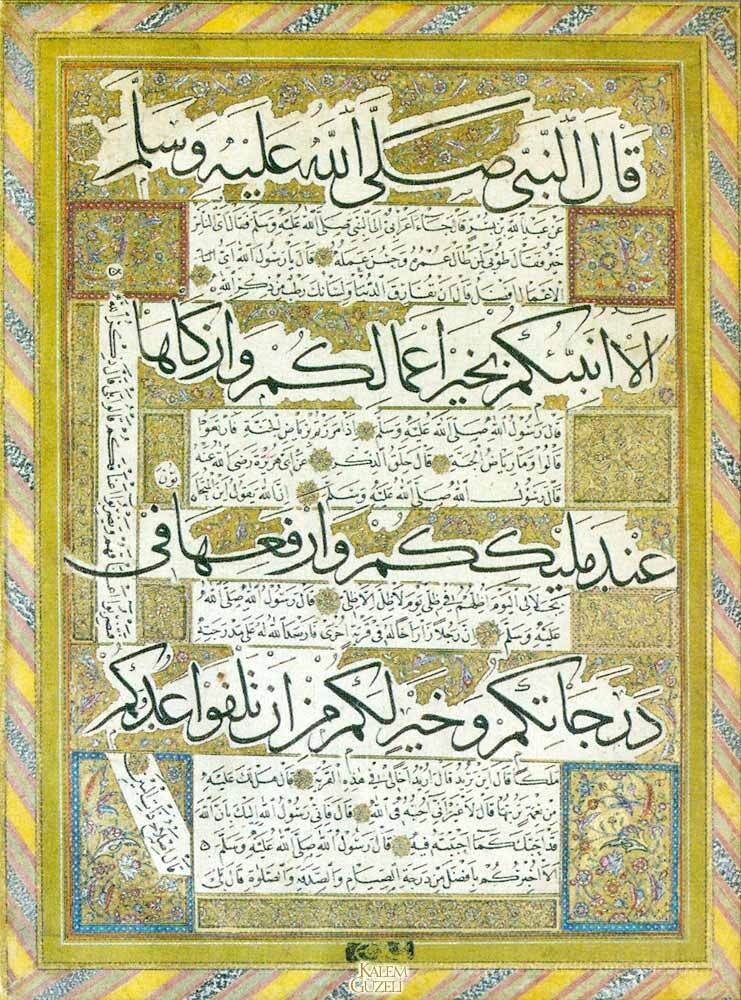 قَالَ النَّبِيُّ صَلَّى اللهُ عَلَيْهِ وَسَلَّمَ
عن عبد الله بن بسر قال جاء اعرابي الى النبي صلى الله عليه وسلم فقال اي الناس
خير فقال طوبى لمن طال عمره وحسن عمله قال يا رسول الله اي
الاعمال افضل قال ان تفارق الدنيا ولسانك رطب من ذكر الله
اَلَا اُنَبِّئُكُمْ بِخَيْرِ اَعْمَالِكُمْ وَاَزْكَاهَا
قال رسول الله صلى الله عليه وسلم اذا مررتم برياض الجنة فارتعوا
قالوا وما رياض الجنة قال حلق الذكر عن ابي هريرة رضي الله عنه
قال رسول الله صلى الله عليه وسلم ان الله يقول اين المتحابون
عِنْدَ مَلِيكِكُمْ وَاَرْفَعِهَا فِي
بجلالي اليوم اظلهم في ظلي يوم لا ظل الا ظلي قال رسول الله صلى الله
عليه وسلم ان رجلا زار اخا له في قرية اخرى فارصد الله له على مدرجته
دَرَجَاتِكُمْ وَخَيْرٍ لَكُمْ مِنْ اَنْ تَلْقَوْا عَدُوَّكُمْ
ملكا قال اين تريد قال اريد اخا لي في هذه القرية قال هل لك عليه
من نعمة تربها قال لا غير اني احببته في الله قال فاني رسول الله اليك بان الله
قد احبك كما احببته فيه قال رسول الله صلى الله عليه وسلم
الا اخبركم بافضل من درجة الصيام والصدقة والصلوة قال قلنا بلى
KALEM
GÜZELİ